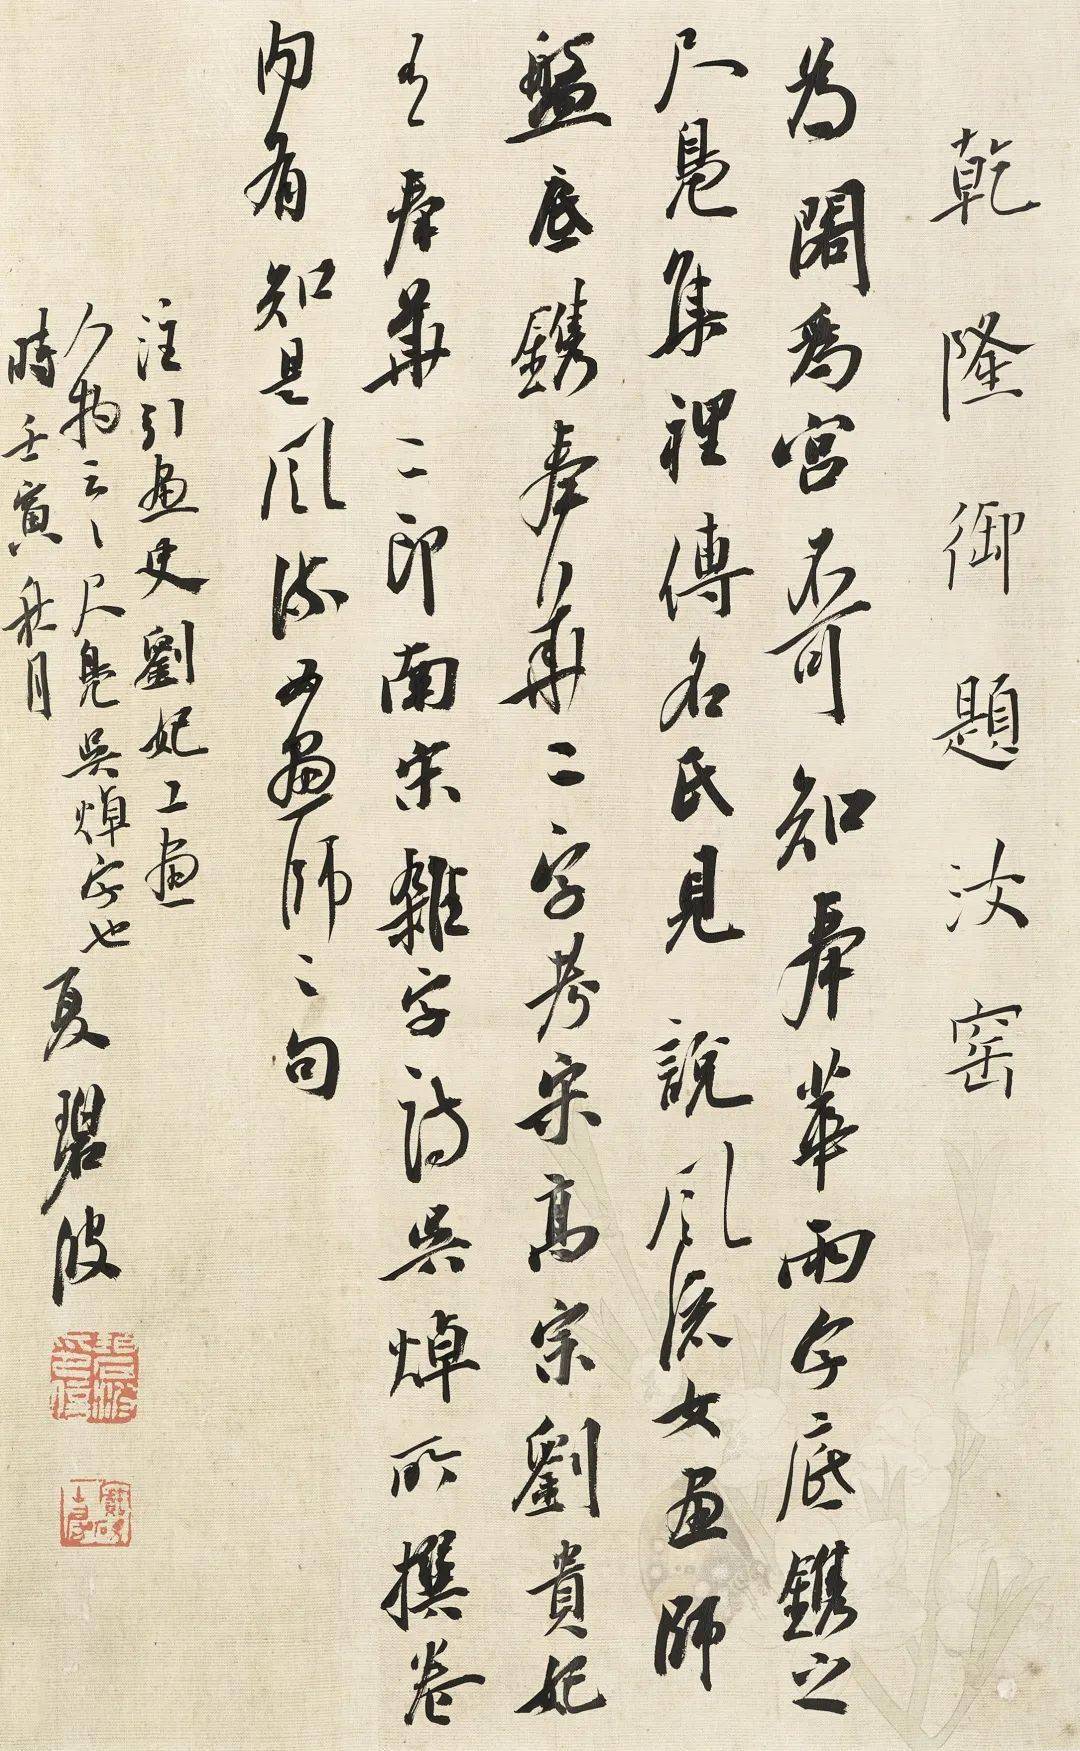 乾隆御題汝窑
為閣爲宮不可知奉華兩字底鐫之
尺鳧集裡傳名氏見說風流女畫師
盤底鐫奉華二字考宋高宗劉貴妃
有奉華二印南宋雜字詩吳焯所撰卷
内有知是風流女畫師之句
注引畫史劉妃工畫
人物云云尺鳧吳焯字也
時壬寅秋月
夏碧波